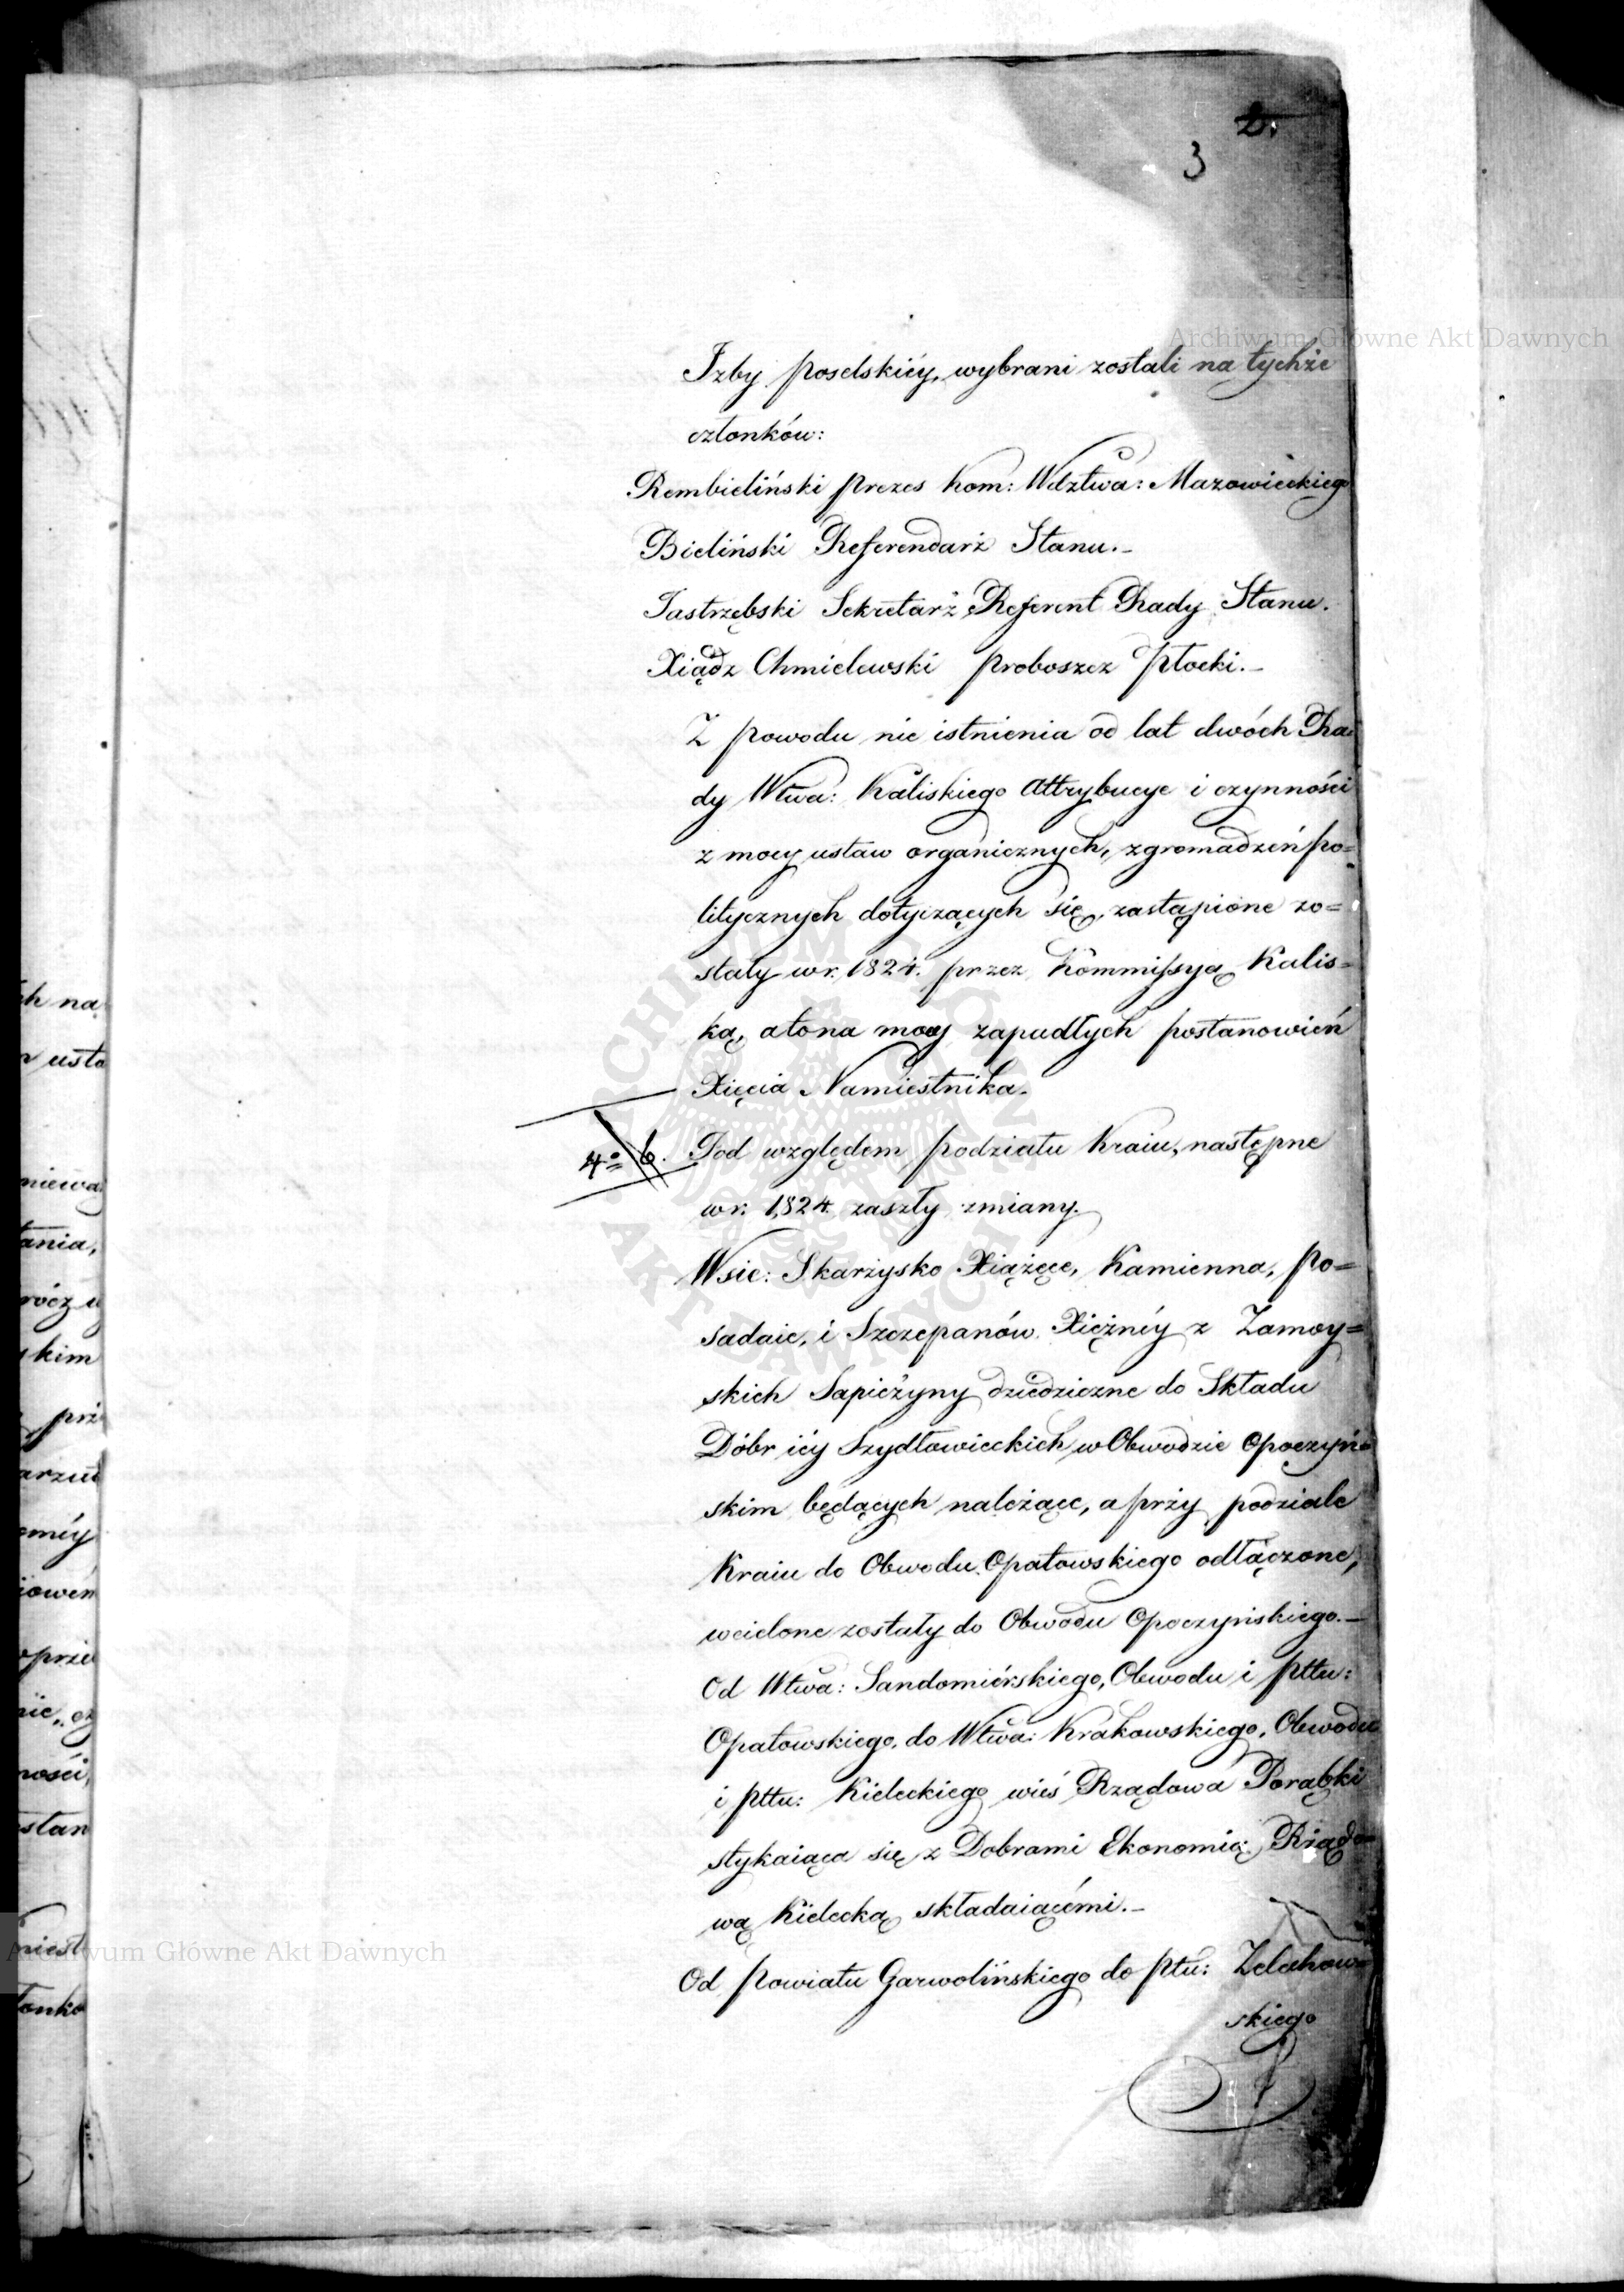 2.
3
Archiwum Główne Akt Dawnych
Izby poselskiéy, wybrani zostali na tychże
członków:
Rembieliński prezes Kom: Wdztwa: Mazowieckiego
Bieliński Referendarż Stanu.-
Jastrzębski Sekretarż Referent Rady Stanu.
Xiądz Chmielewski proboszcz Płocki.-
Z powodu nie istnienia od lat dwóch Ra-
dy Wtwa: Kaliskiego Attrybucye i czynności
z mocy ustaw organicznych, zgromadzeń po=
litycznych dotyczących się, zastąpione zo=
stały w r. 1824. przez Kommissyą Kalis=
ką, a to na mocy zapadłych postanowień
Xięcia Namiestnika.
4º 6. Pod względem podziału Kraiu, następne
w r. 1824. zaszły zmiany.
Wsie: Skarżysko Xiążęce, Kamienna, Po=
sadaie, i Szczepanów Xiężnéy z Zamoy=
skich Sapieżyny dziedziczne do Składu
Dóbr iéy Szydłowieckich w Obwodzie Opoczyń=
skim będących należące, a przy podziale
Kraiu do Obwodu Opatowskiego odłączone,
wcielone zostały do Obwodu Opoczyńskiego.-
Od Wtwa: Sandomiérskiego, Obwodu i pttu:
Opatowskiego, do Wtwa: Krakowskiego, Obwodu
i pttu: Kieleckiego wieś Rządowa Porąbki
stykaiąca się z Dobrami Ekonomią Rządo=
wą Kielecką składaiącémi.-
Od powiatu Garwolińskiego do ptu: Zelechow=
skiego
ch na
usta
niewa
tania,
rócz u
skim
prz
arzut
iowem
nie, cz
ności,
stan
miest
łonko
Archiwum Główne Akt Dawnych
ARCHIWUM GŁÓWNE
AKT DAWNYCH